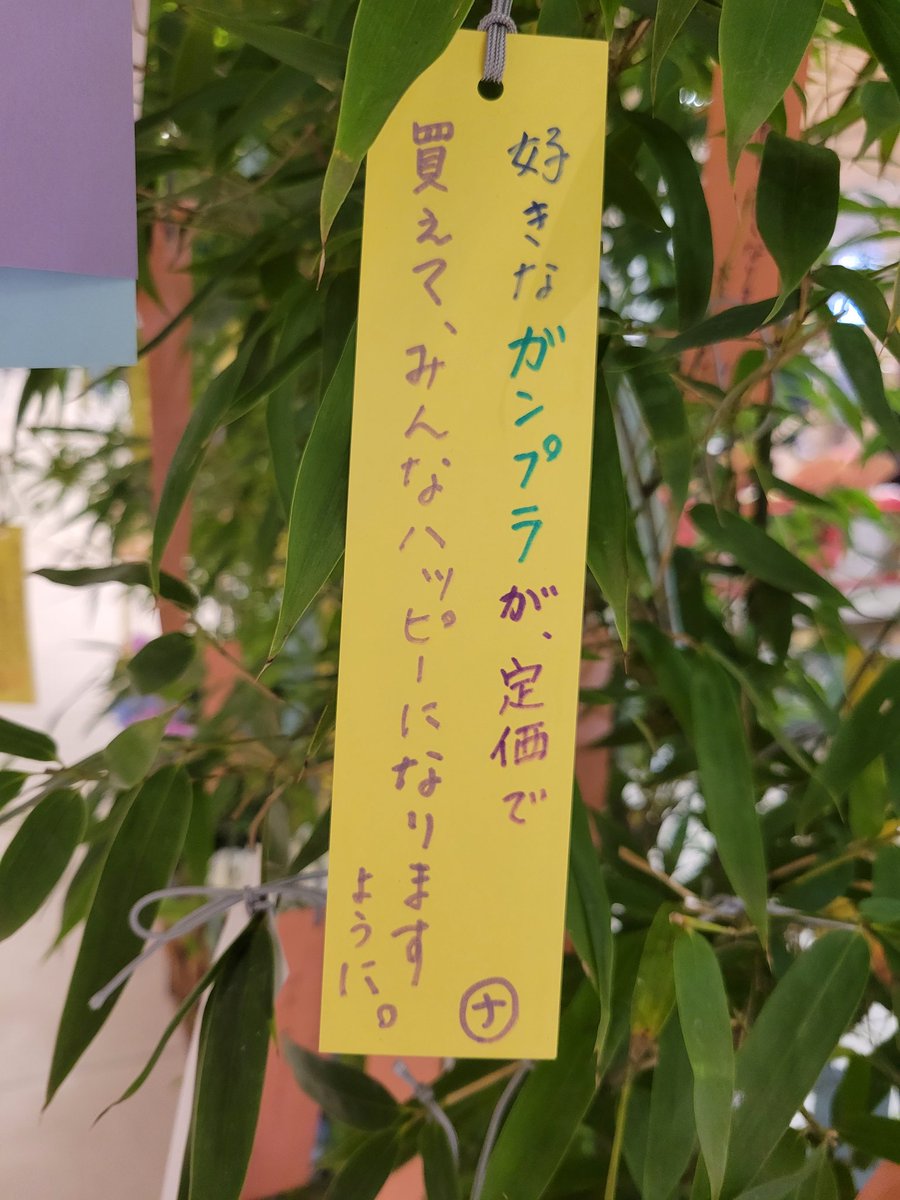 好きなガンプラが、定価で
買えて、みんなハッピーになります
ように。
ナ